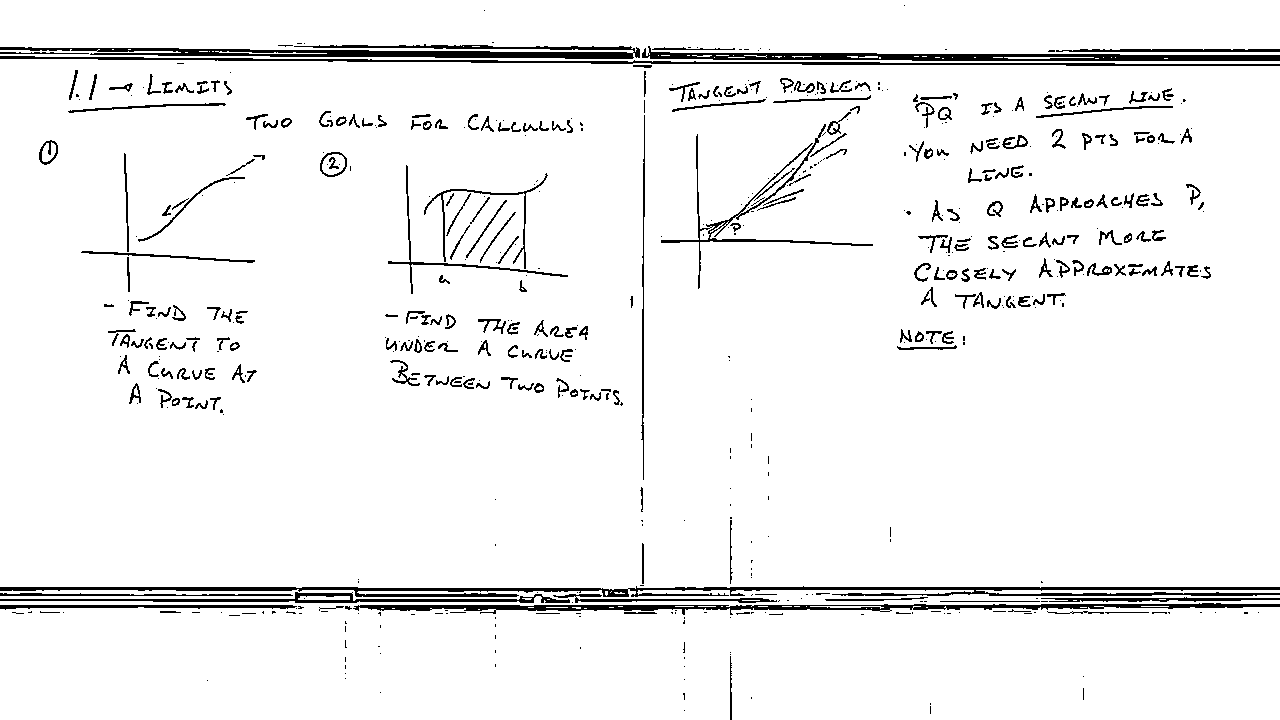 1.1 → LIMITS
TWO GOALS FOR CALCULUS:
①
②
a
b
- FIND THE
TANGENT TO
A CURVE AT
A POINT.
- FIND THE AREA
UNDER A CURVE
BETWEEN TWO POINTS.
TANGENT PROBLEM:
Q
P
PQ IS A SECANT LINE.
· YOU NEED 2 PTS FOR A
LINE.
· AS Q APPROACHES P,
THE SECANT MORE
CLOSELY APPROXIMATES
A TANGENT.
NOTE: